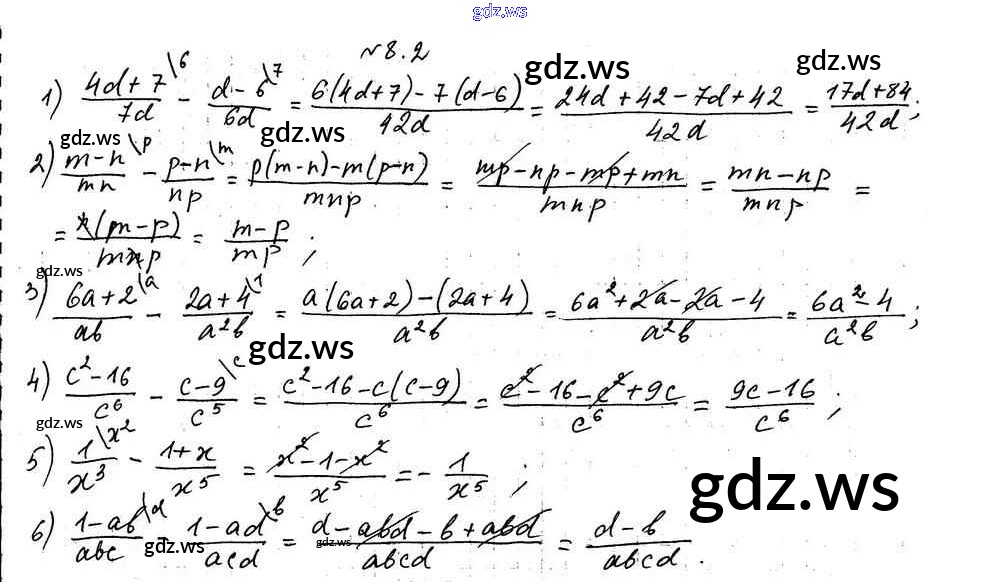 gdz.ws
№8.2
1) \frac{4d+7^{\backslash 6}}{7d} - \frac{d-6^{\backslash 7}}{6d} = \frac{6(4d+7)-7(d-6)}{42d} = \frac{24d+42-7d+42}{42d} = \frac{17d+84}{42d};
2) \frac{m-n^{\backslash p}}{mn} - \frac{p-n^{\backslash m}}{np} = \frac{p(m-n)-m(p-n)}{mnp} = \frac{mp-np-mp+mn}{mnp} = \frac{mn-np}{mnp} =
= \frac{n(m-p)}{mnp} = \frac{m-p}{mp};
3) \frac{6a+2^{\backslash a}}{ab} - \frac{2a+4^{\backslash 1}}{a^2b} = \frac{a(6a+2)-(2a+4)}{a^2b} = \frac{6a^2+2a-2a-4}{a^2b} = \frac{6a^2-4}{a^2b};
4) \frac{c^2-16}{c^6} - \frac{c-9^{\backslash c}}{c^5} = \frac{c^2-16-c(c-9)}{c^6} = \frac{c^2-16-c^2+9c}{c^6} = \frac{9c-16}{c^6};
5) \frac{1^{\backslash x^2}}{x^3} - \frac{1+x}{x^5} = \frac{x^2-1-x^2}{x^5} = -\frac{1}{x^5};
6) \frac{1-ab^{\backslash d}}{abc} - \frac{1-ad^{\backslash b}}{acd} = \frac{d-abd-b+abd}{abcd} = \frac{d-b}{abcd}.
gdz.ws
gdz.ws
gdz.ws
gdz.ws
gdz.ws
gdz.ws
gdz.ws
gdz.ws
gdz.ws
gdz.ws